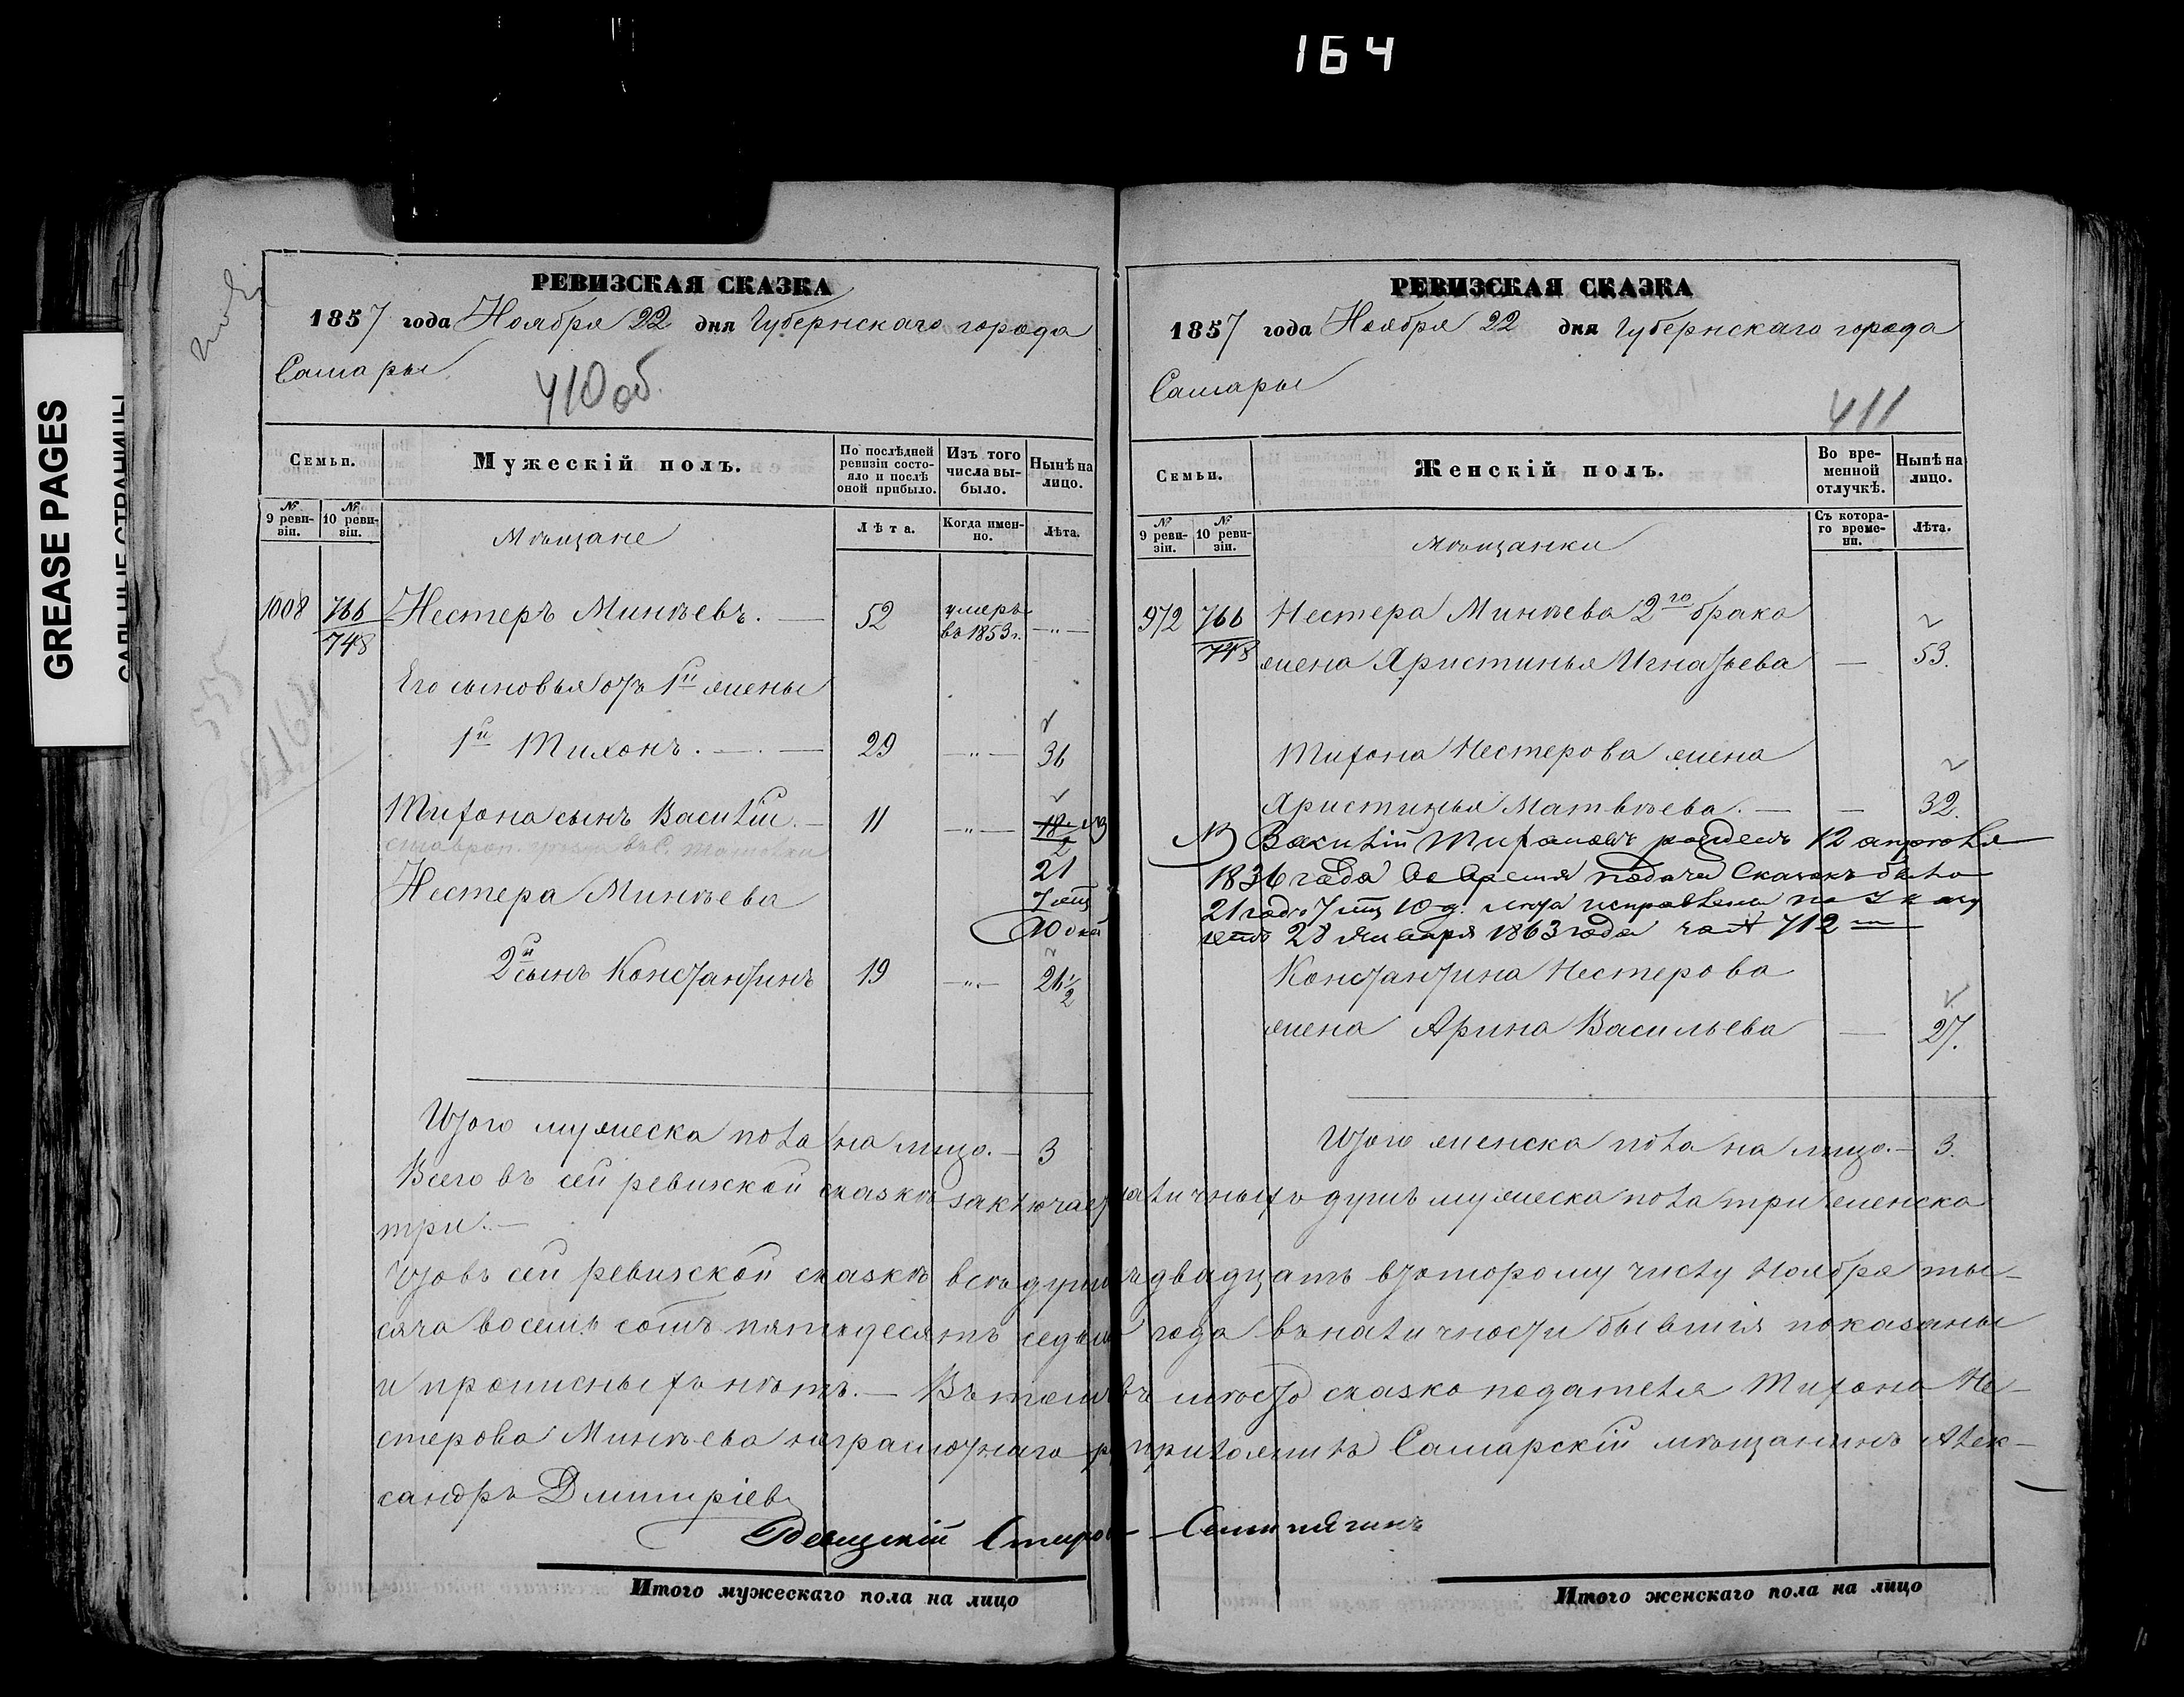 164
GREASE PAGES
РЕВИЗСКАЯ СКАЗКА
1857 года Ноября 22 дня Губернскаго города
Самары
410 об.
Семьи.
Мужескій полъ.
По послѣдней ревизіи состояло и послѣ оной прибыло.
Изъ того числа выбыло.
Нынѣ на лицо.
№ 9 ревизіи.
№ 10 ревизіи.
Мѣщане
Лѣта.
Когда именно.
Лѣта.
1008 766 Нестеръ Минѣевъ. — 52 умеръ въ 1853 г. —"—
748
Его сыновья отъ 1й жены
1й Тихонъ. — . — 29 —"— 36
Тихона сынъ Василій. — 11 —"— 18
21
Нестера Минѣева 7 мѣц
10 дней
2й сынъ Константинъ 19 —"— 21½
Итого мужеска пола на лицо. — 3
РЕВИЗСКАЯ СКАЗКА
1857 года Ноября 22 дня Губернскаго города
Самары
411
Семьи.
Женскій полъ.
Во временной отлучкѣ.
Нынѣ на лицо.
№ 9 ревизіи.
№ 10 ревизіи.
мѣщанки
Съ котораго времени.
Лѣта.
972 766 Нестера Минѣева 2го брака
748 жена Христинья Игнатьева — 53.
Тихона Нестерова жена
Христинья Матвѣева. — — 32.
NB Василій Тихоновъ рожденъ 12 апрѣля
1836 года во время подачи сказокъ было
21 годъ 7 мѣц 10 д. лѣта исправлена по
28 января 1863 года за № 712
Константина Нестерова
жена Арина Васильева — 27.
Итого женска пола на лицо. — 3.
Всего въ сей ревизской сказкѣ заключается наличныхъ душъ мужеска пола три женска
три. —
Что въ сей ревизской сказкѣ всѣ души къ двадцать второму числу Ноября ты-
сяча восемь сотъ пятьдесятъ седьмаго года въ наличности бывшія показаны
и прописныхъ нѣтъ. — Въ томъ въ мѣсто сказкоподателя Тихона Не-
стерова Минѣева неграмотнаго приложилъ Самарскій мѣщанинъ Алек-
сандръ Дмитріевъ
Мѣщанскій Староста
Итого мужескаго пола на лицо
Итого женскаго пола на лицо